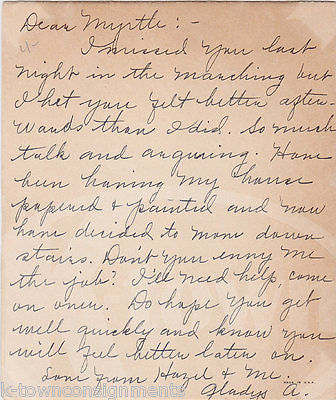 Dear Myrtle:-
I missed you last
night in the marching but
I bet you felt better after
wards than I did. So much
talk and arguing. Have
been having my house
papered & painted and now
have decided to move down
stairs. Dont you envy me
the job? I'll need help, come
on over. Do hope you get
well quickly and know you
will feel better later on.
Love from Hazel & Me.
MADE IN U.S.A.
Gladys A.
k-townconsignments